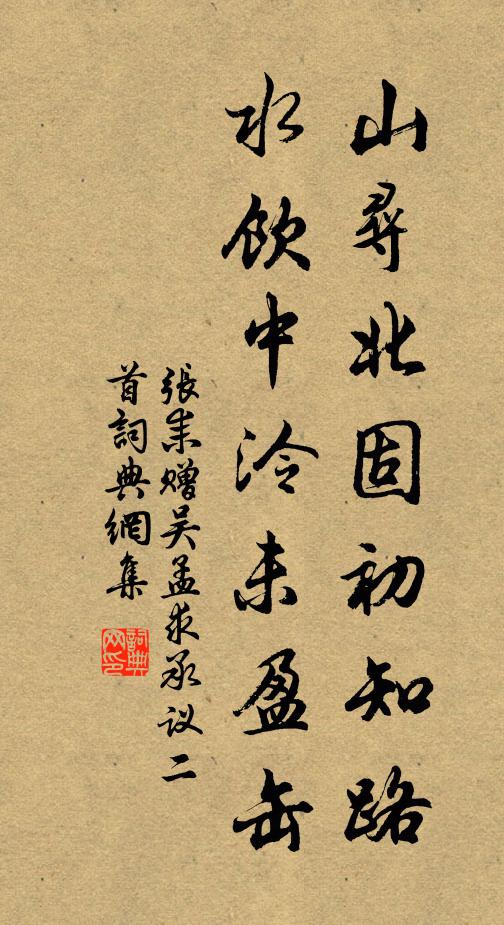 山尋北固初知路
水飲中泠未盈缶
張耒贈吴孟求承议二
首詞典網集
詞典
网印